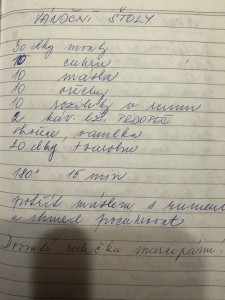 VÁNOČNÍ ŠTOLY
30 dkg mouky
10 cukru
10 másla
10 ořechy
10 rozinky v rumu
2 káv. lž. PEDOPEČ
skořice, vanilka
20 dkg tvarohu
180° 15 min
potřít máslem s rumem
a ihned pocukrovat